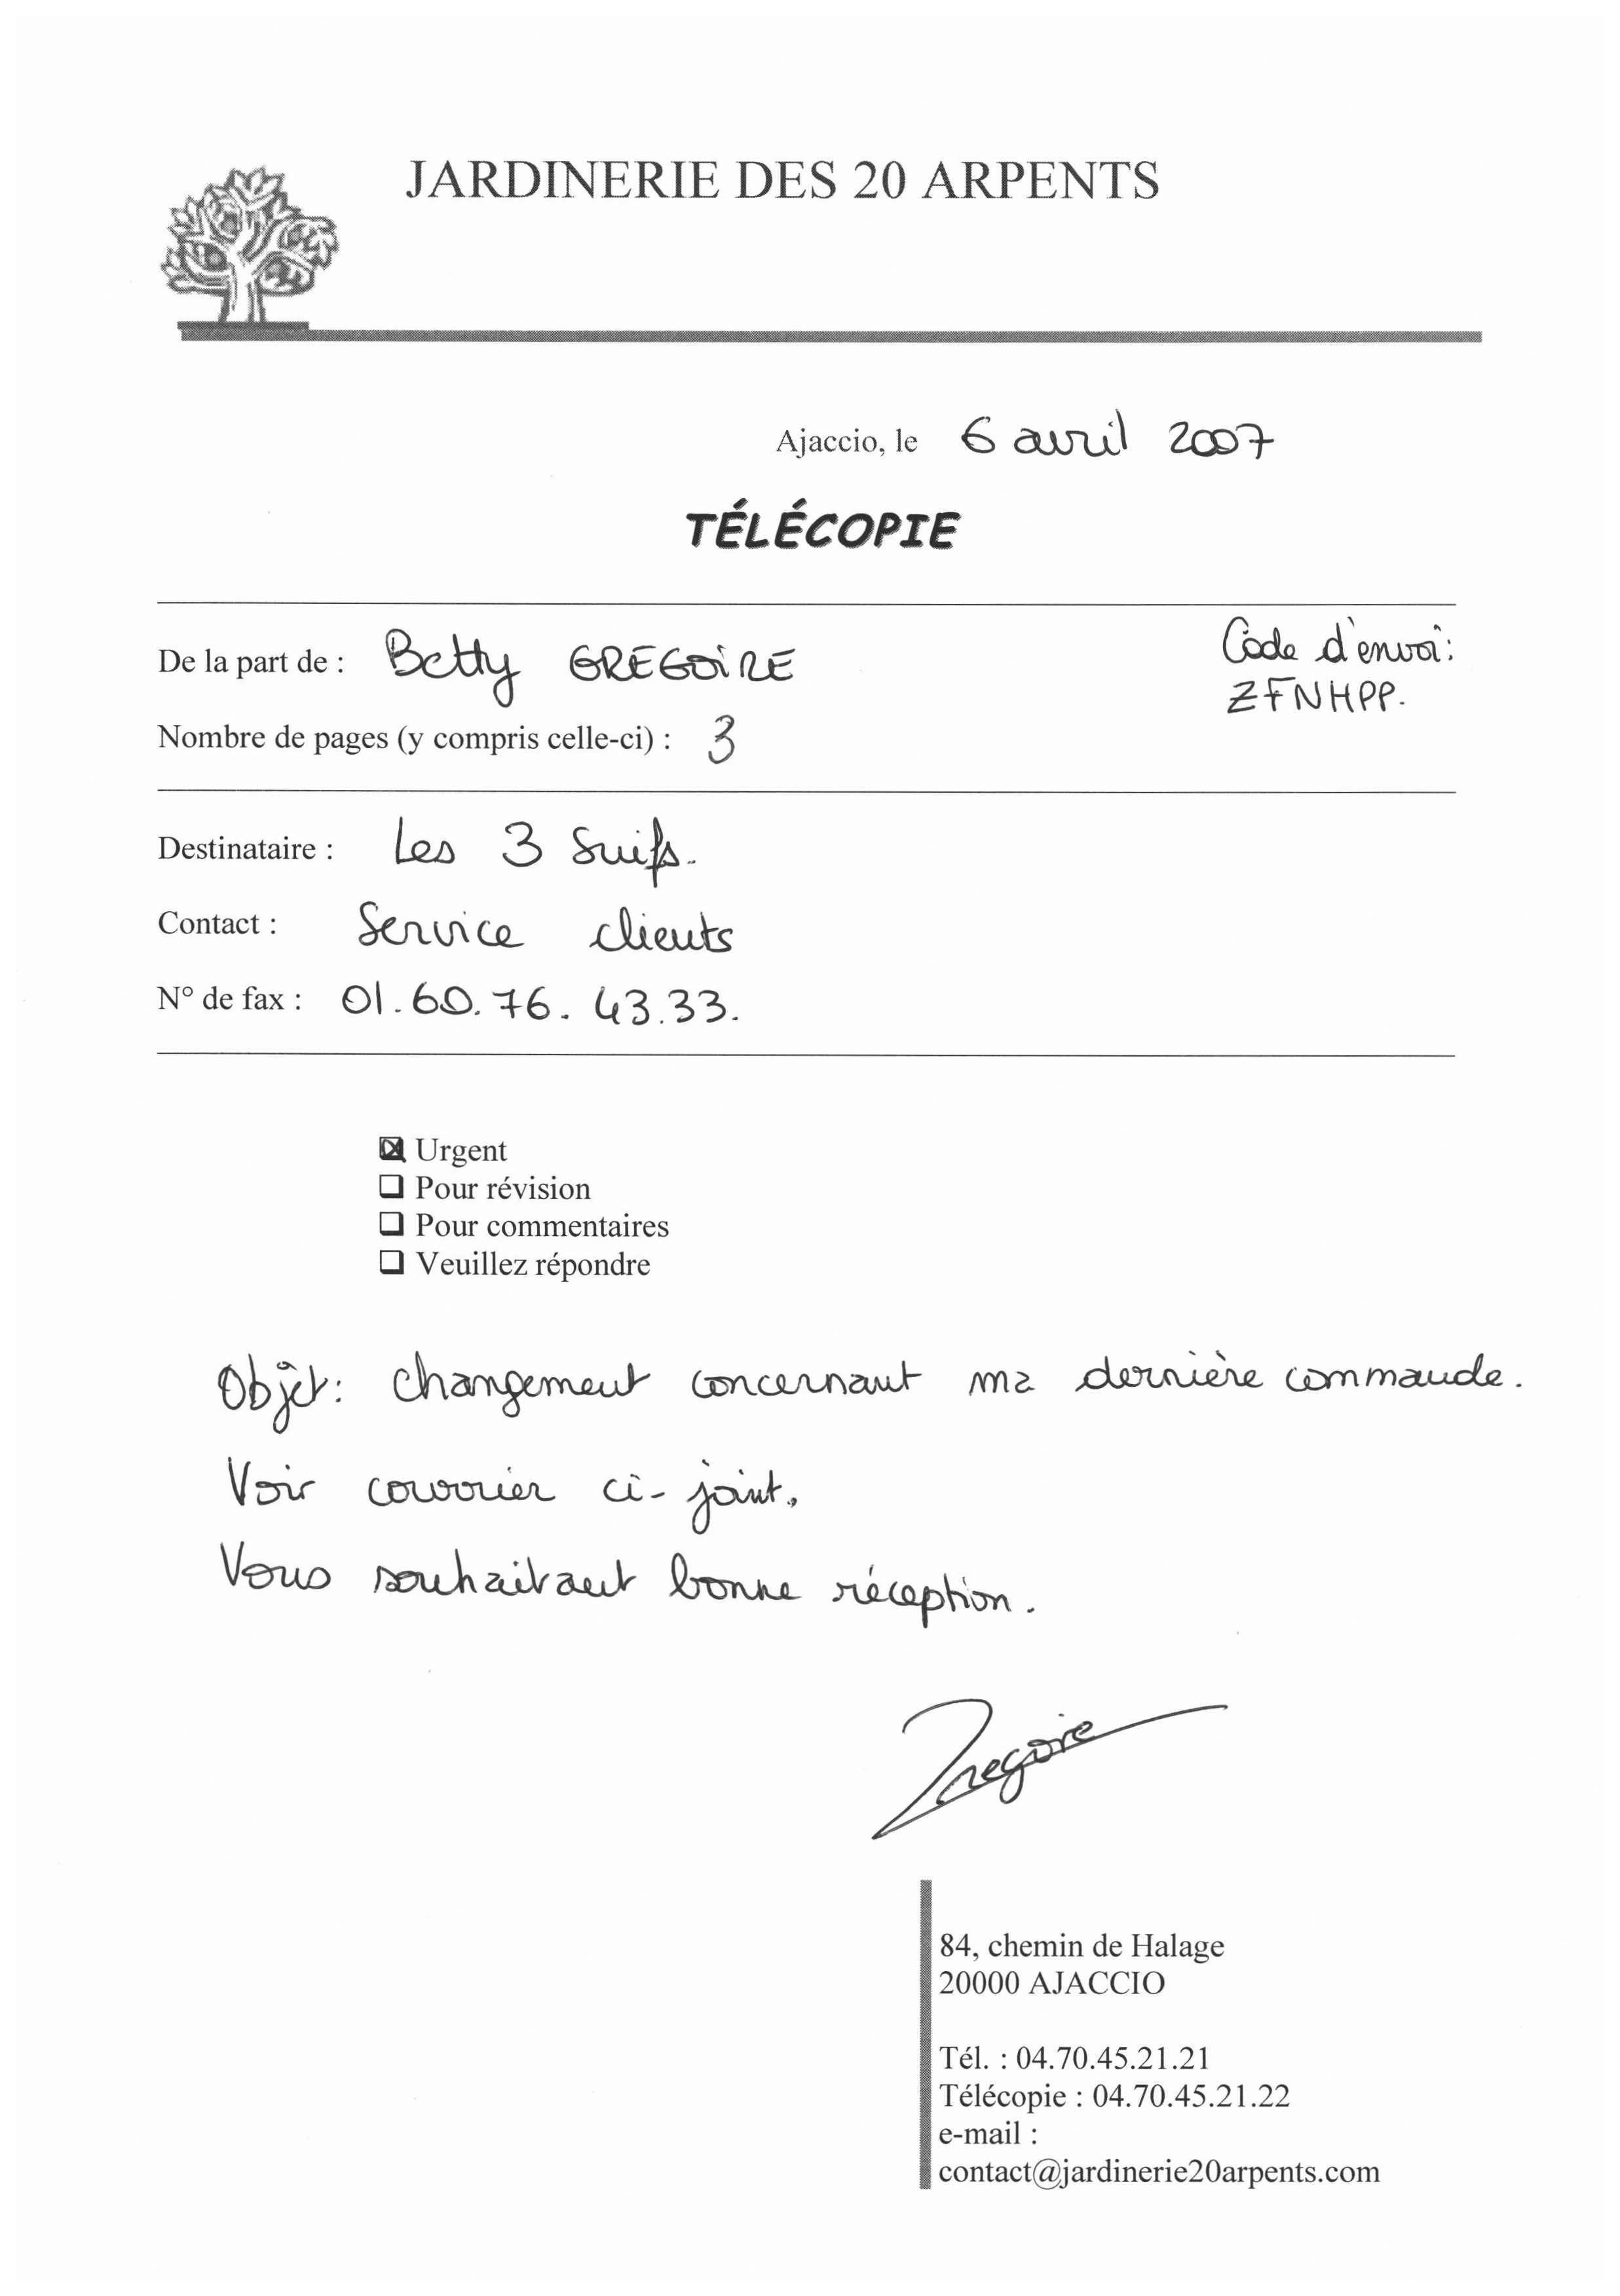 JARDINERIE DES 20 ARPENTS
Ajaccio, le 6 avril 2007
TÉLÉCOPIE
De la part de : Betty GREGOIRE
Code d'envoi:
ZFNHPP.
Nombre de pages (y compris celle-ci) : 3
Destinataire : Les 3 Suifs.
Contact : Service clients
N° de fax : 01.60.76.43.33.
Urgent
Pour révision
Pour commentaires
Veuillez répondre
Objet: changement concernant ma dernière commande.
Voir courrier ci-joint.
Vous souhaitant bonne réception.
Gregoire
84, chemin de Halage
20000 AJACCIO
Tél. : 04.70.45.21.21
Télécopie : 04.70.45.21.22
e-mail :
contact@jardinerie20arpents.com